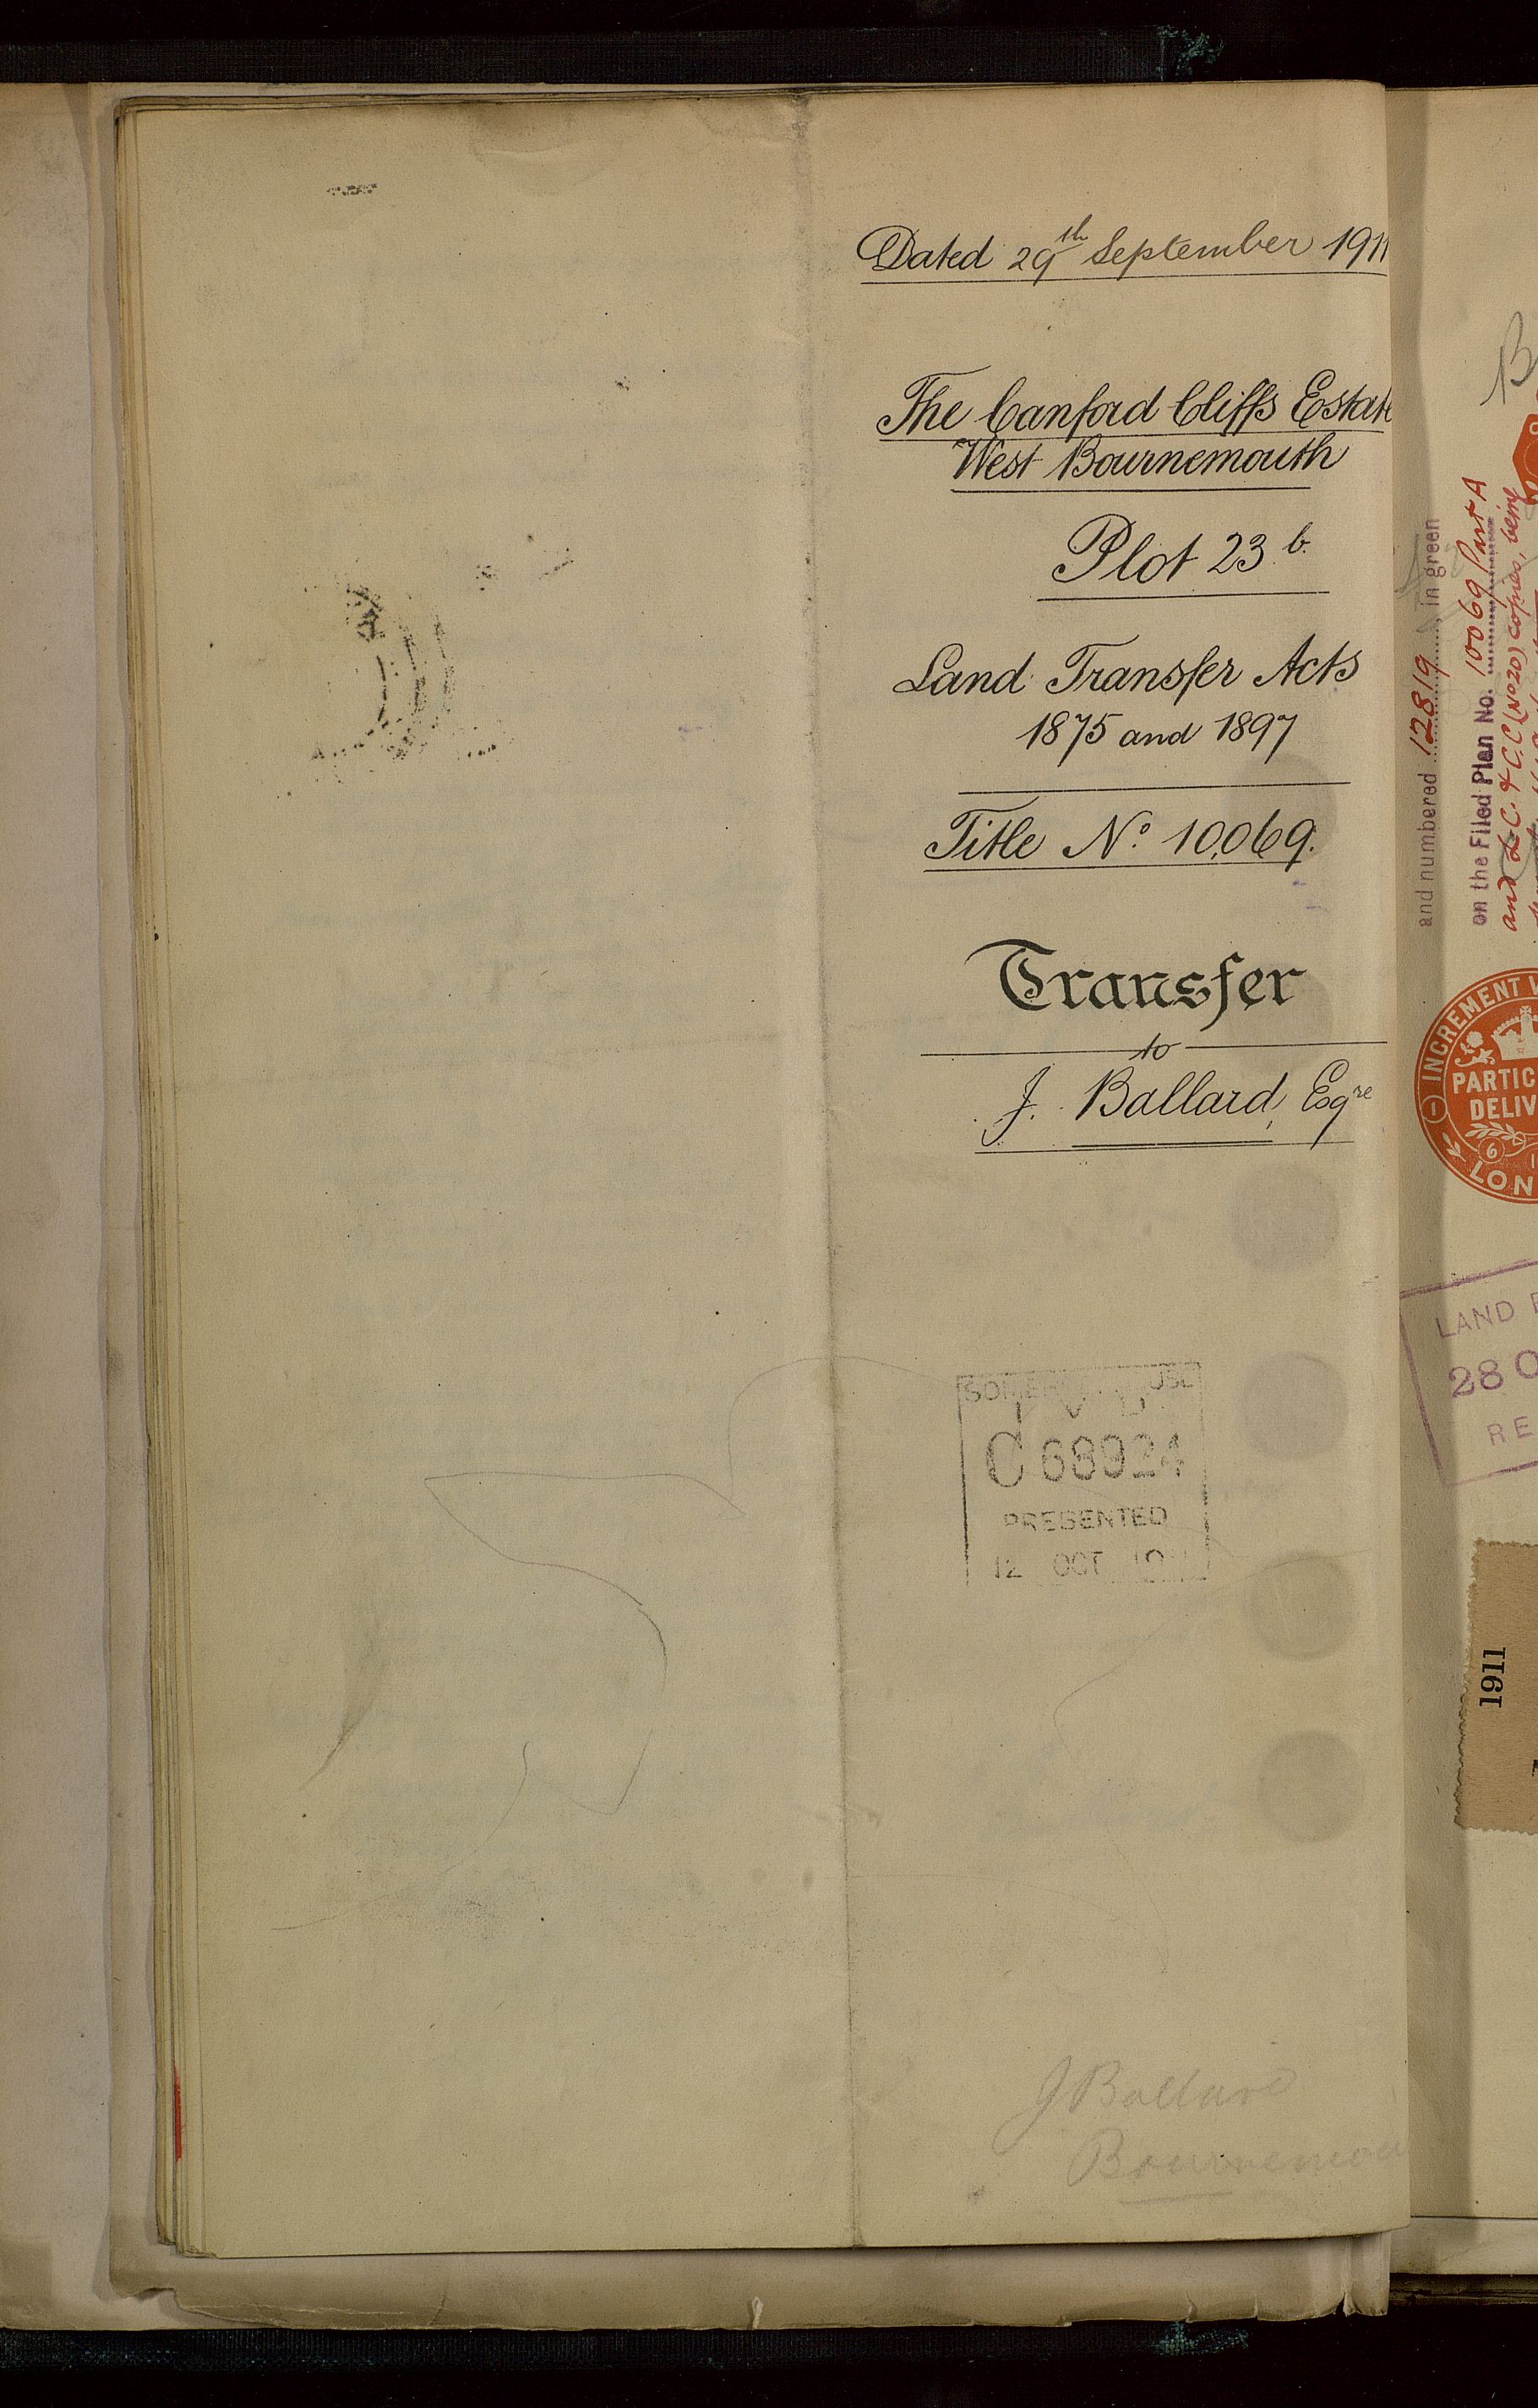 Dated 29th September 1911
The Canford Cliffs Estate
West Bournemouth
Plot 23 b.
Land Transfer Acts
1875 and 1897
Title No. 10,069.
Transfer
to
J. Ballard, Esqre
C 68924
PRESENTED
12 OCT
J Ballard
Bournemou
and numbered 12819 in green
on the Filed Plan No. 10069 Part A
and L.C. & C.C (No 20) copies, being
B
INCREMENT V
PARTIC
DELIV
LON
LAND
28 O
RE
1911